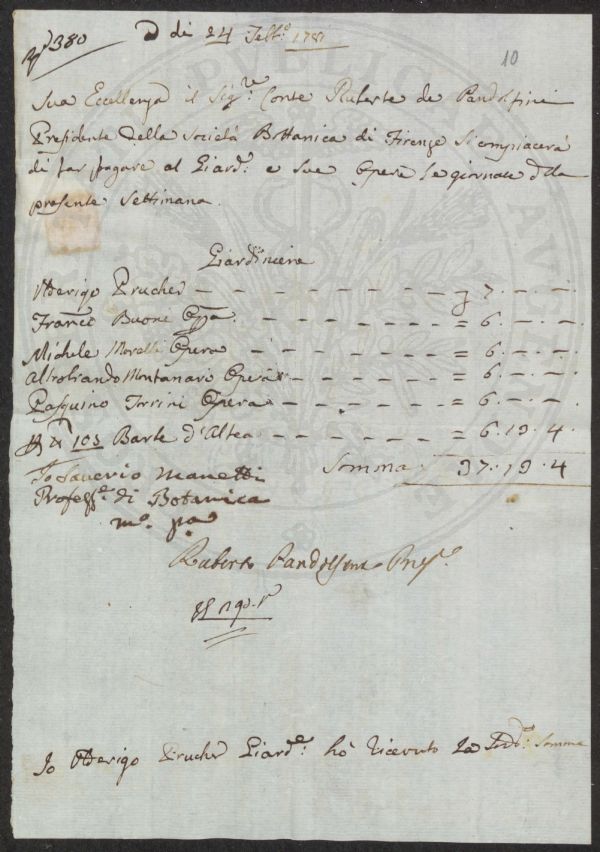 N° 380
A dì 24 Febb.° 1781
10
Sua Eccellenza il Sig.re Conte Ruberto de Pandolfini
Presidente della Società Bottanica di Firenze si compiacerà
di far pagare al Giard.e e sue Opere le giornate della
presente Settimana.
Giardiniere
Arrigo Prucher = 7. -. -
Franc.o Buoni Opra = 6. -. -
Michele Morelli Opera = 6. -. -
Altobrando Montanari Opera = 6. -. -
Pasquino Torrini Opera = 6. -. -
103 Barbe d'Altea = 6. 19. 4.
Io Saverio Manetti Somma 37. 19. 4
Profess.e di Botanica
m.o p.a
Ruberto Pandolfini Pres.e
Io Arrigo Prucher Giard.e hò ricevuto la Sud.a Somma